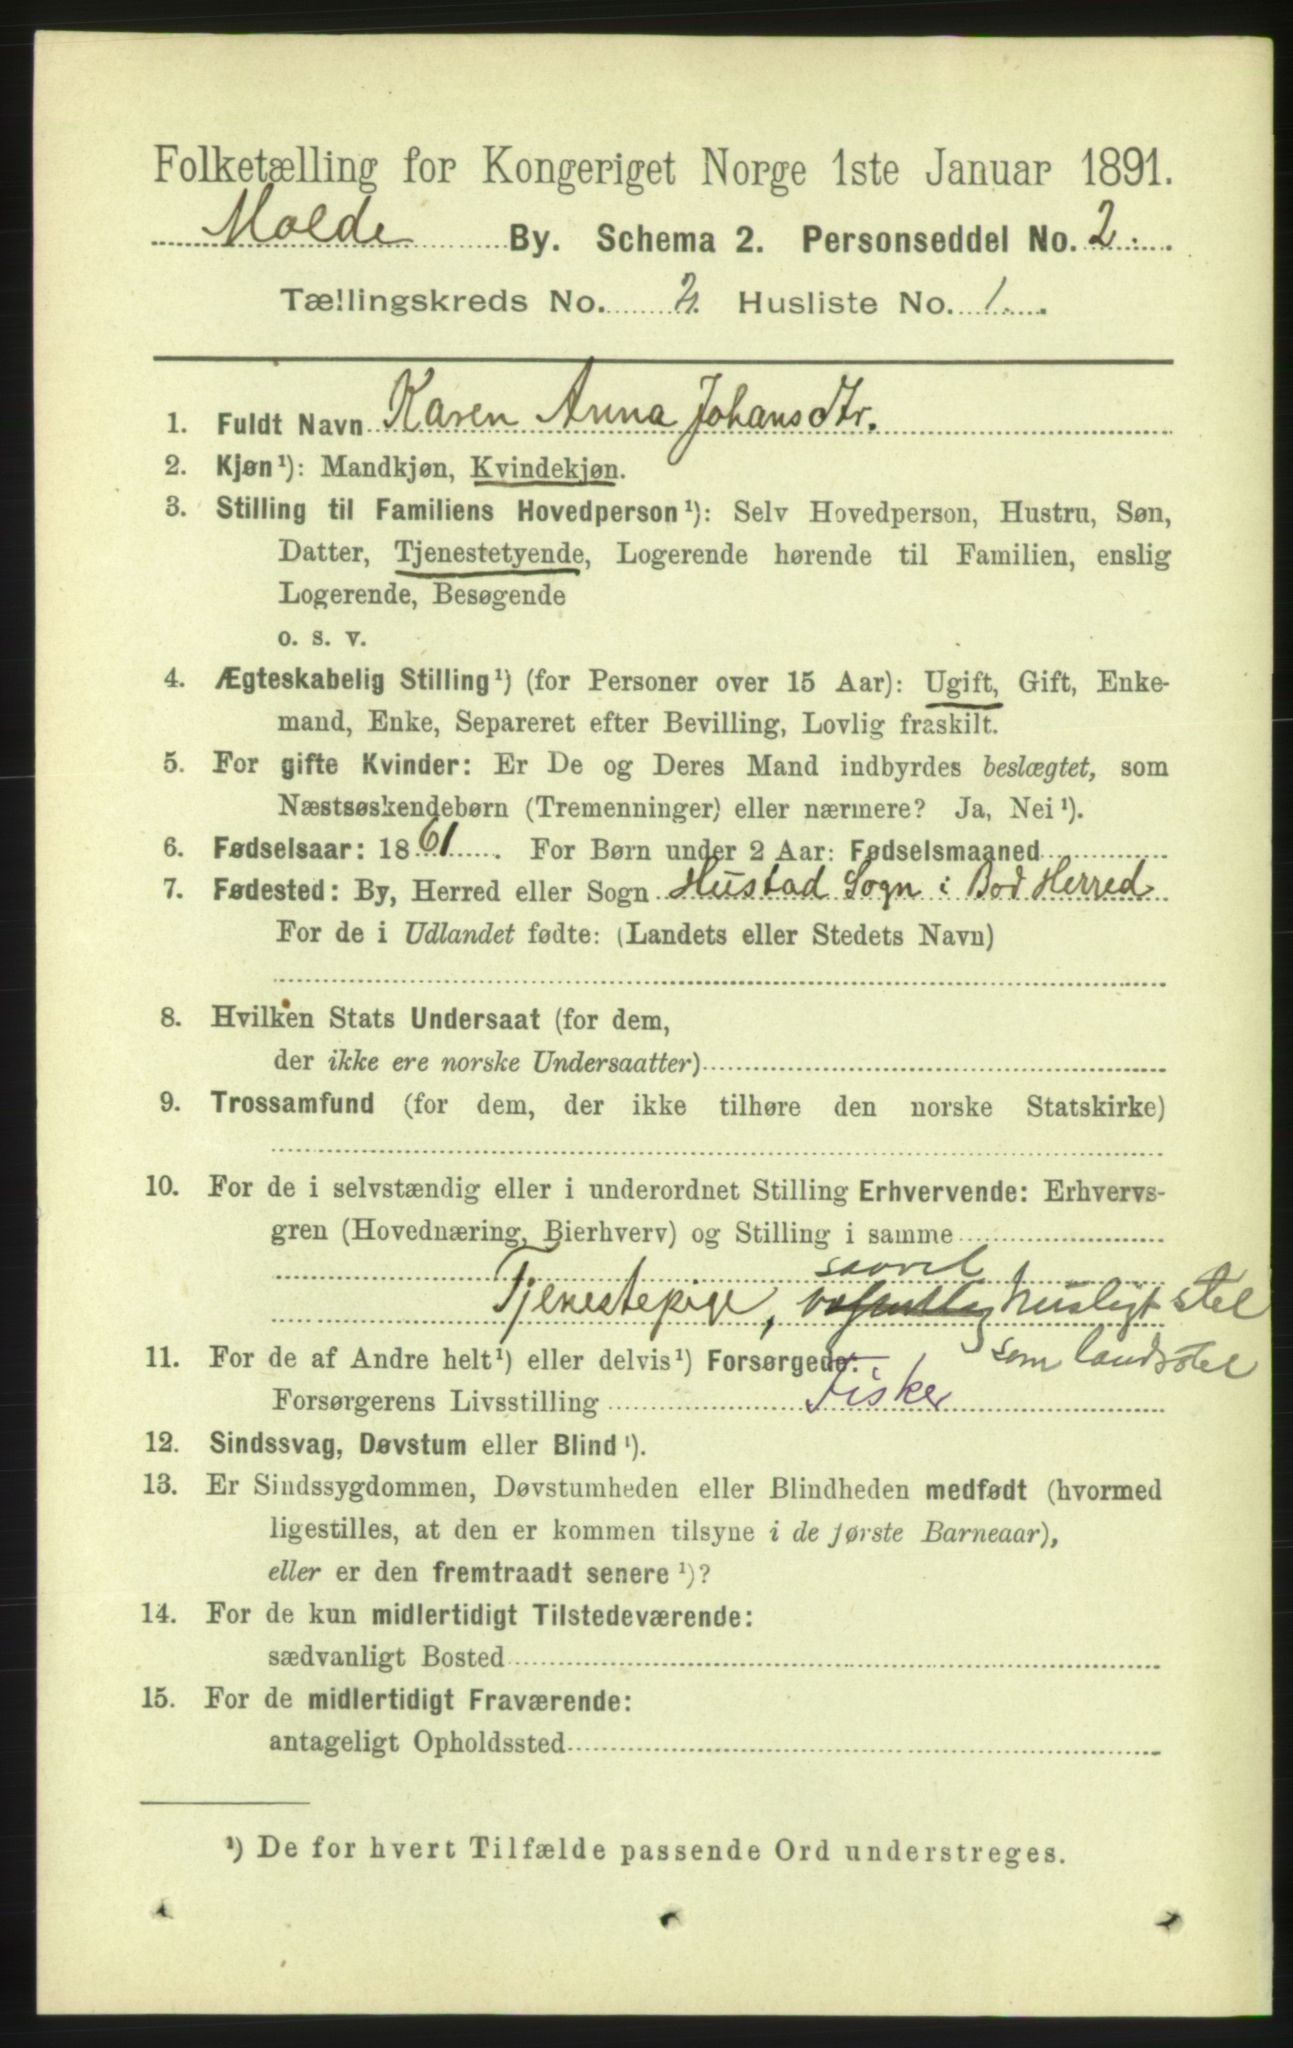 Folketælling for Kongeriget Norge 1ste Januar 1891.
Molde By. Schema 2. Personseddel No. 2.
Tællingskreds No. 2. Husliste No. 1.
1. Fuldt Navn Karen Anna Johansdtr.
2. Kjøn¹): Mandkjøn, Kvindekjøn.
3. Stilling til Familiens Hovedperson¹): Selv Hovedperson, Hustru, Søn,
Datter, Tjenestetyende, Logerende hørende til Familien, enslig
Logerende, Besøgende
o. s. v.
4. Ægteskabelig Stilling¹) (for Personer over 15 Aar): Ugift, Gift, Enke-
mand, Enke, Separeret efter Bevilling, Lovlig fraskilt.
5. For gifte Kvinder: Er De og Deres Mand indbyrdes beslægtet, som
Næstsøskendebørn (Tremenninger) eller nærmere? Ja, Nei¹).
6. Fødselsaar: 1861. For Børn under 2 Aar: Fødselsmaaned
7. Fødested: By, Herred eller Sogn Hustad Sogn i Bod Herred
For de i Udlandet fødte: (Landets eller Stedets Navn)
8. Hvilken Stats Undersaat (for dem,
der ikke ere norske Undersaatter)
9. Trossamfund (for dem, der ikke tilhøre den norske Statskirke)
10. For de i selvstændig eller i underordnet Stilling Erhvervende: Erhvervs-
gren (Hovednæring, Bierhverv) og Stilling i samme
saavel
Tjenestepige, husligt stel
som landstel
11. For de af Andre helt¹) eller delvis¹) Forsørgede:
Forsørgerens Livsstilling Fisker
12. Sindssvag, Døvstum eller Blind¹).
13. Er Sindssygdommen, Døvstumheden eller Blindheden medfødt (hvormed
ligestilles, at den er kommen tilsyne i de første Barneaar),
eller er den fremtraadt senere¹)?
14. For de kun midlertidigt Tilstedeværende:
sædvanligt Bosted
15. For de midlertidigt Fraværende:
antageligt Opholdssted
¹) De for hvert Tilfælde passende Ord understreges.